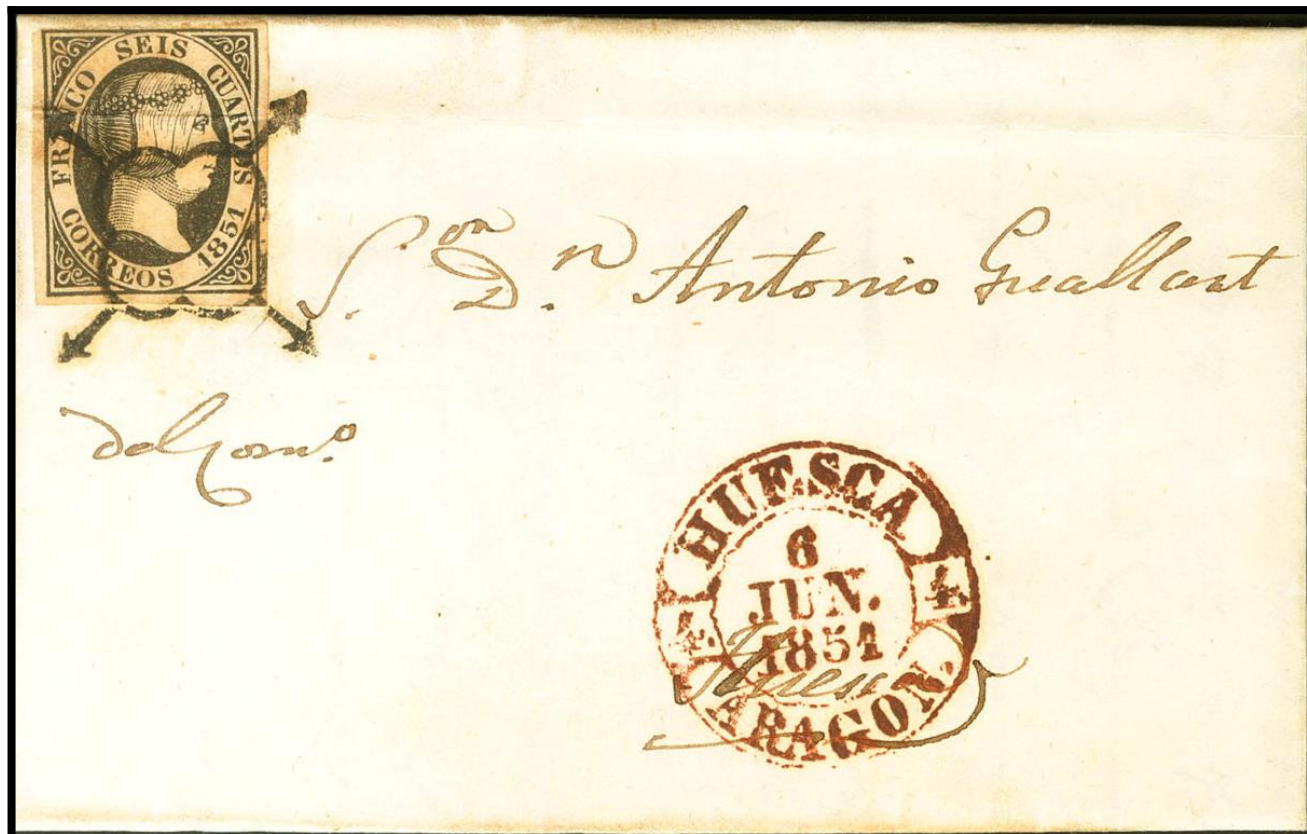 FRANCO SEIS CUARTOS
CORREOS 1851
S.on D.n Antonio Guallart
del Com.o
HUESCA
6
JUN.
1851
4 4
ARAGON.
Huesca